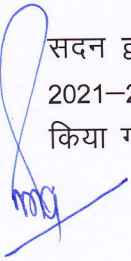 सदन द्व
2021–2
किया ग